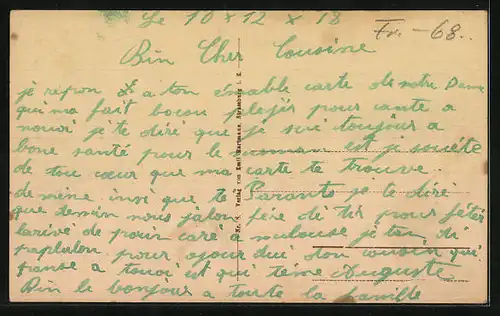 Le 10 x 12 x 18
Fr. -68..
Bin Cher Cousine
je repon a ton émable carte de notre Dame
qui ma fait bocou plejir pour cante a
nouvi je te diré que je sui toujour a
bone santé pour le moman est je suiéte
de tou cœur que ma carte te trouve.
de méme insi que te Parants je te diré
que demin nous jalon feie di tir pour féter
larivé de poin caré a mulouse je ten di
paplulon pour ojour dui don cousin qui
panse a touoi est qui téme Auguste
Bin le bonjour a toute la famille
Nr. 8. Verlag von Emil Hartmann, Strassburg i. E.